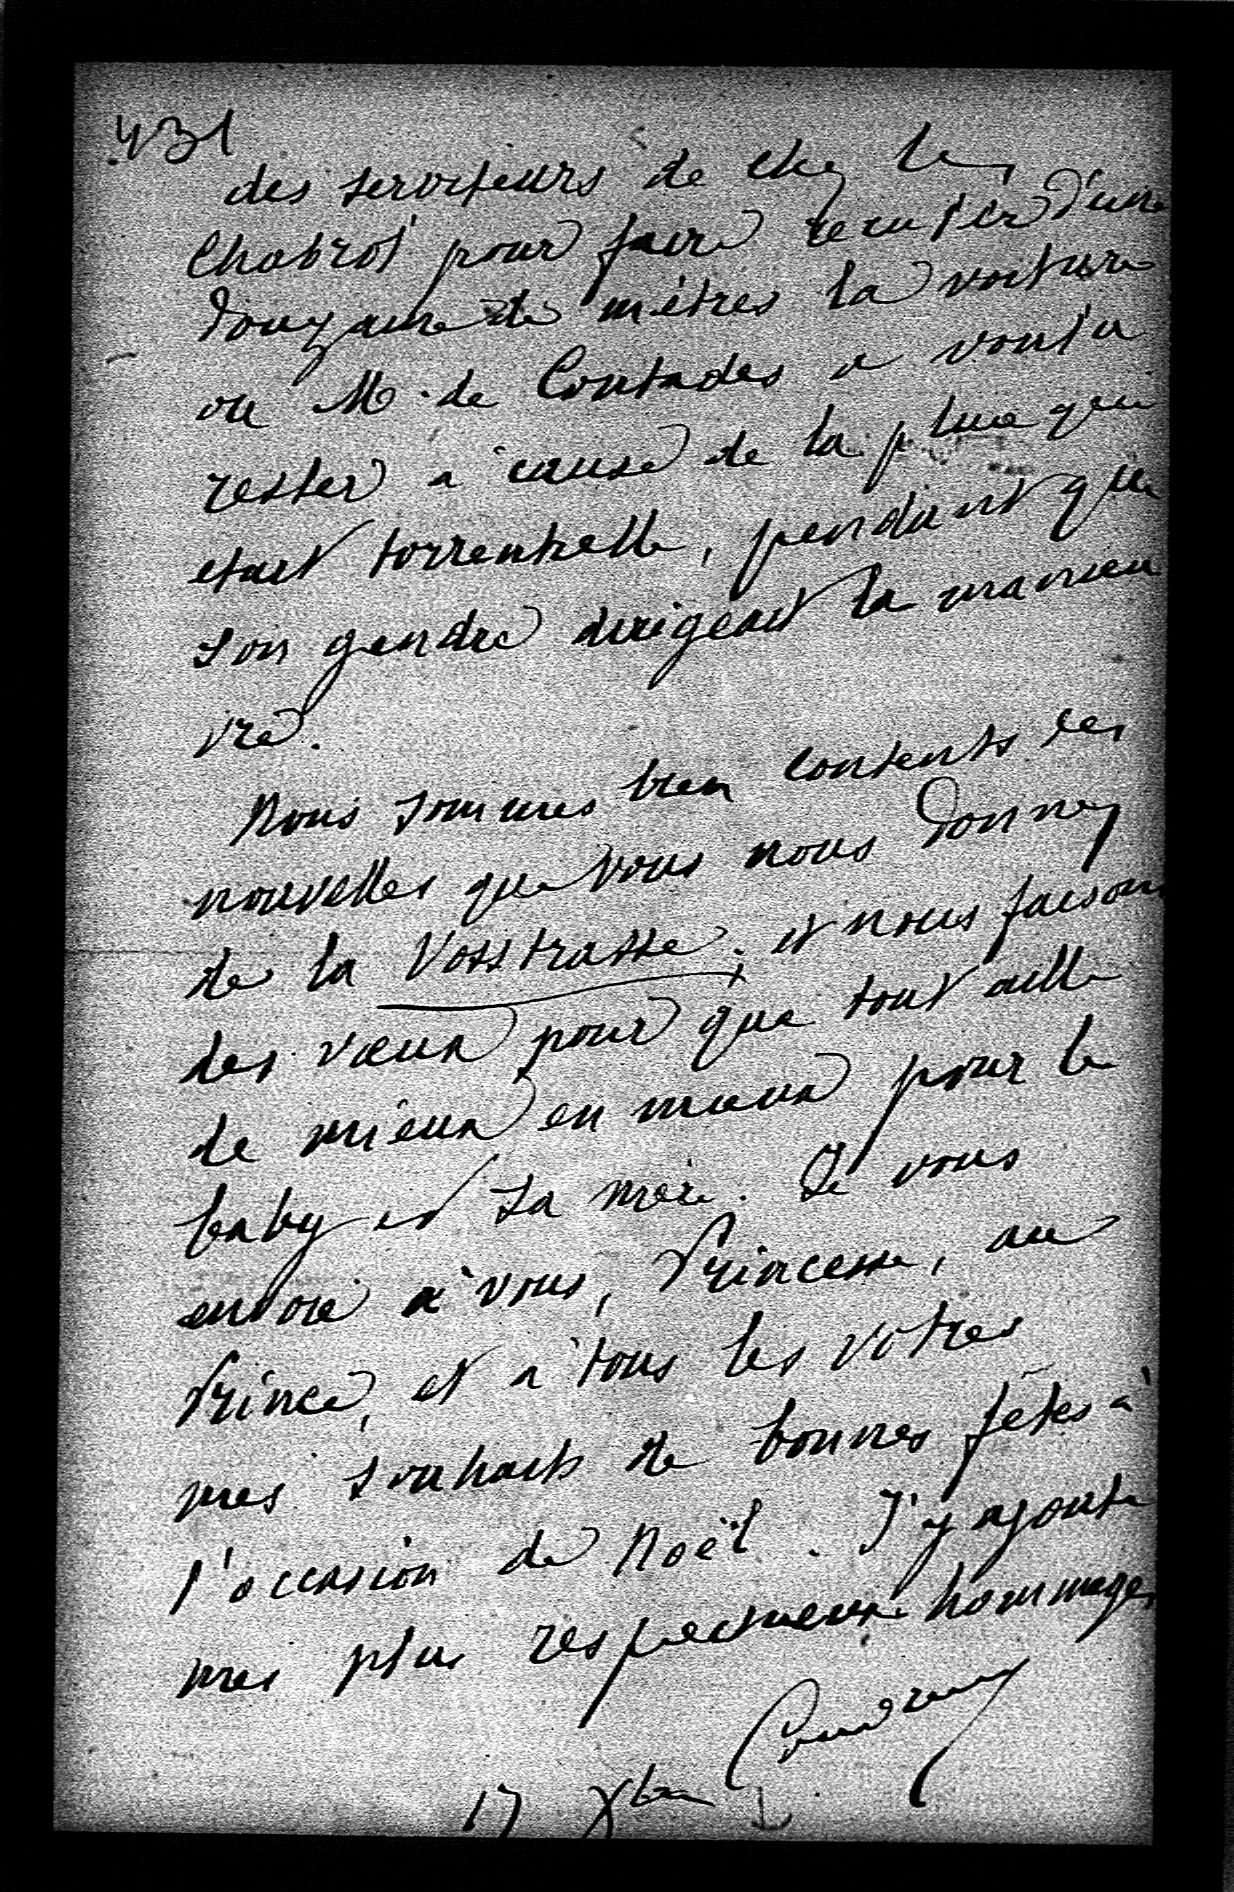 431
des serviteurs de chez les
Chabrol pour faire reculer d'une
douzaine de mètres la voiture
ou M. de Contades a voulu
rester a cause de la pluie qui
etait torrentielle, pendant que
son gendre dirigeait la manœu
vre.
Nous sommes bien contents des
nouvelles que vous nous donnez
de la Vosstrasse; et nous faisons
des vœux pour que tout aille
de mieux en mieux pour le
baby et sa mère. Je vous
envoie à vous, Princesse, au
Prince, et a tous les vôtres
mes souhaits de bonnes fêtes à
l'occasion de Noël. J'y ajoute
mes plus respectueux hommages
17 Xbre